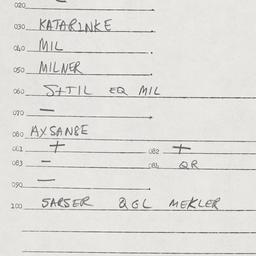 020
030 KATARINKE
040 MIL
050 MILNER
060 EQ MIL
070 —
080 AYSANBE
081 + 082 +
083 — 084 QR
090 —
100 SARSER QGL MEKLER